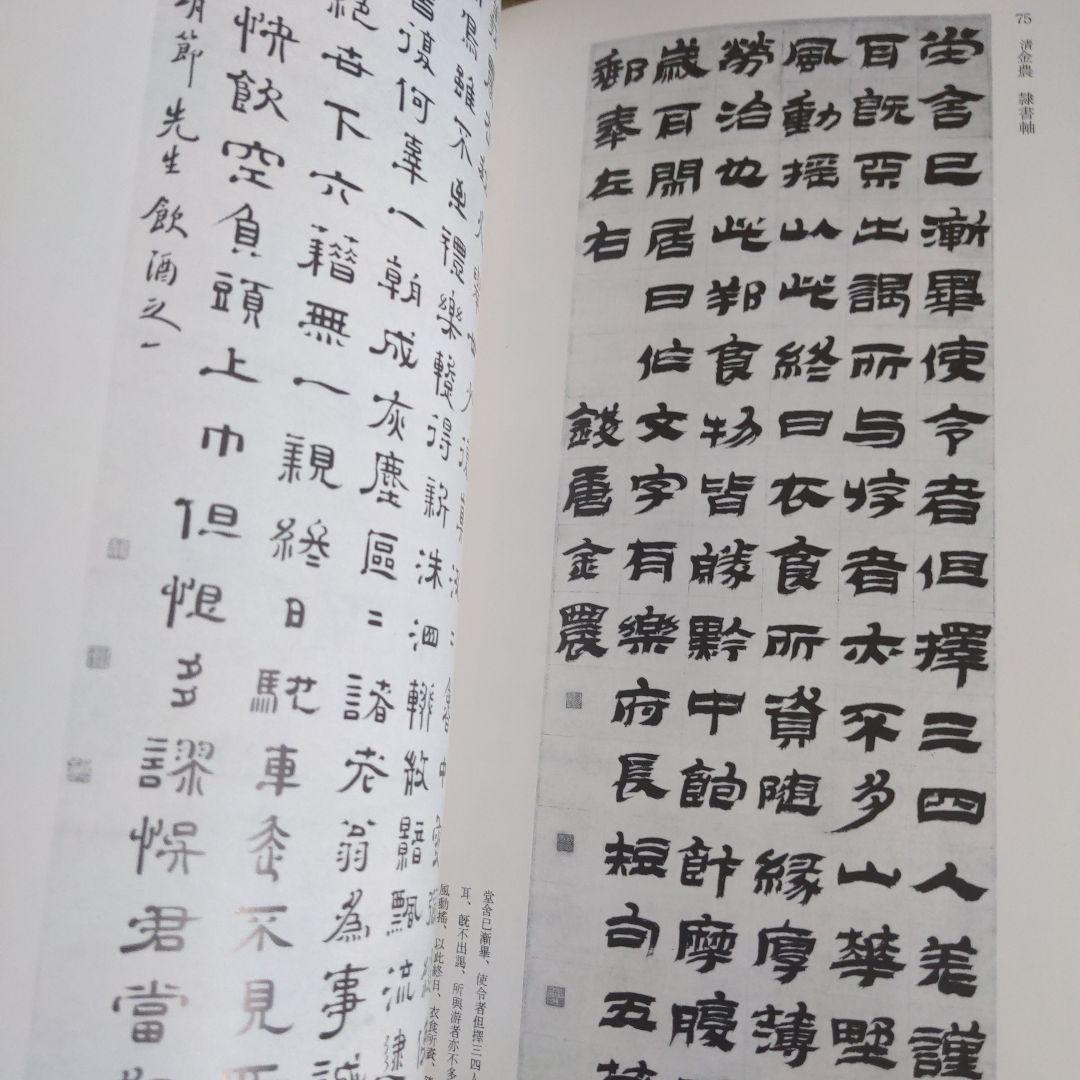 75 清金農 隷書軸
堂舍已漸畢使令者但擇三四人差謹
耳既不出謁所与游者亦不多山華野
風動搖以此終日衣食所資随緣厚薄
勞治也此邦食物皆勝黔中飽飰摩腹
歲耳閒居日作文字有樂府長短句五
郵奉左右 錢唐金農
堂舍已漸畢、使令者但擇三四人
耳、既不出謁、所與游者亦不多
風動搖、以此終日、衣食所資、
雖不至禮樂得新洙泗響飄流逮
書復何辜一朝成灰塵區二諸老翁為事誠
絕世下六籍無一親終日馳車走不見所
快飲空負頭上巾但恨多謬誤君當
節先生飲酒之一